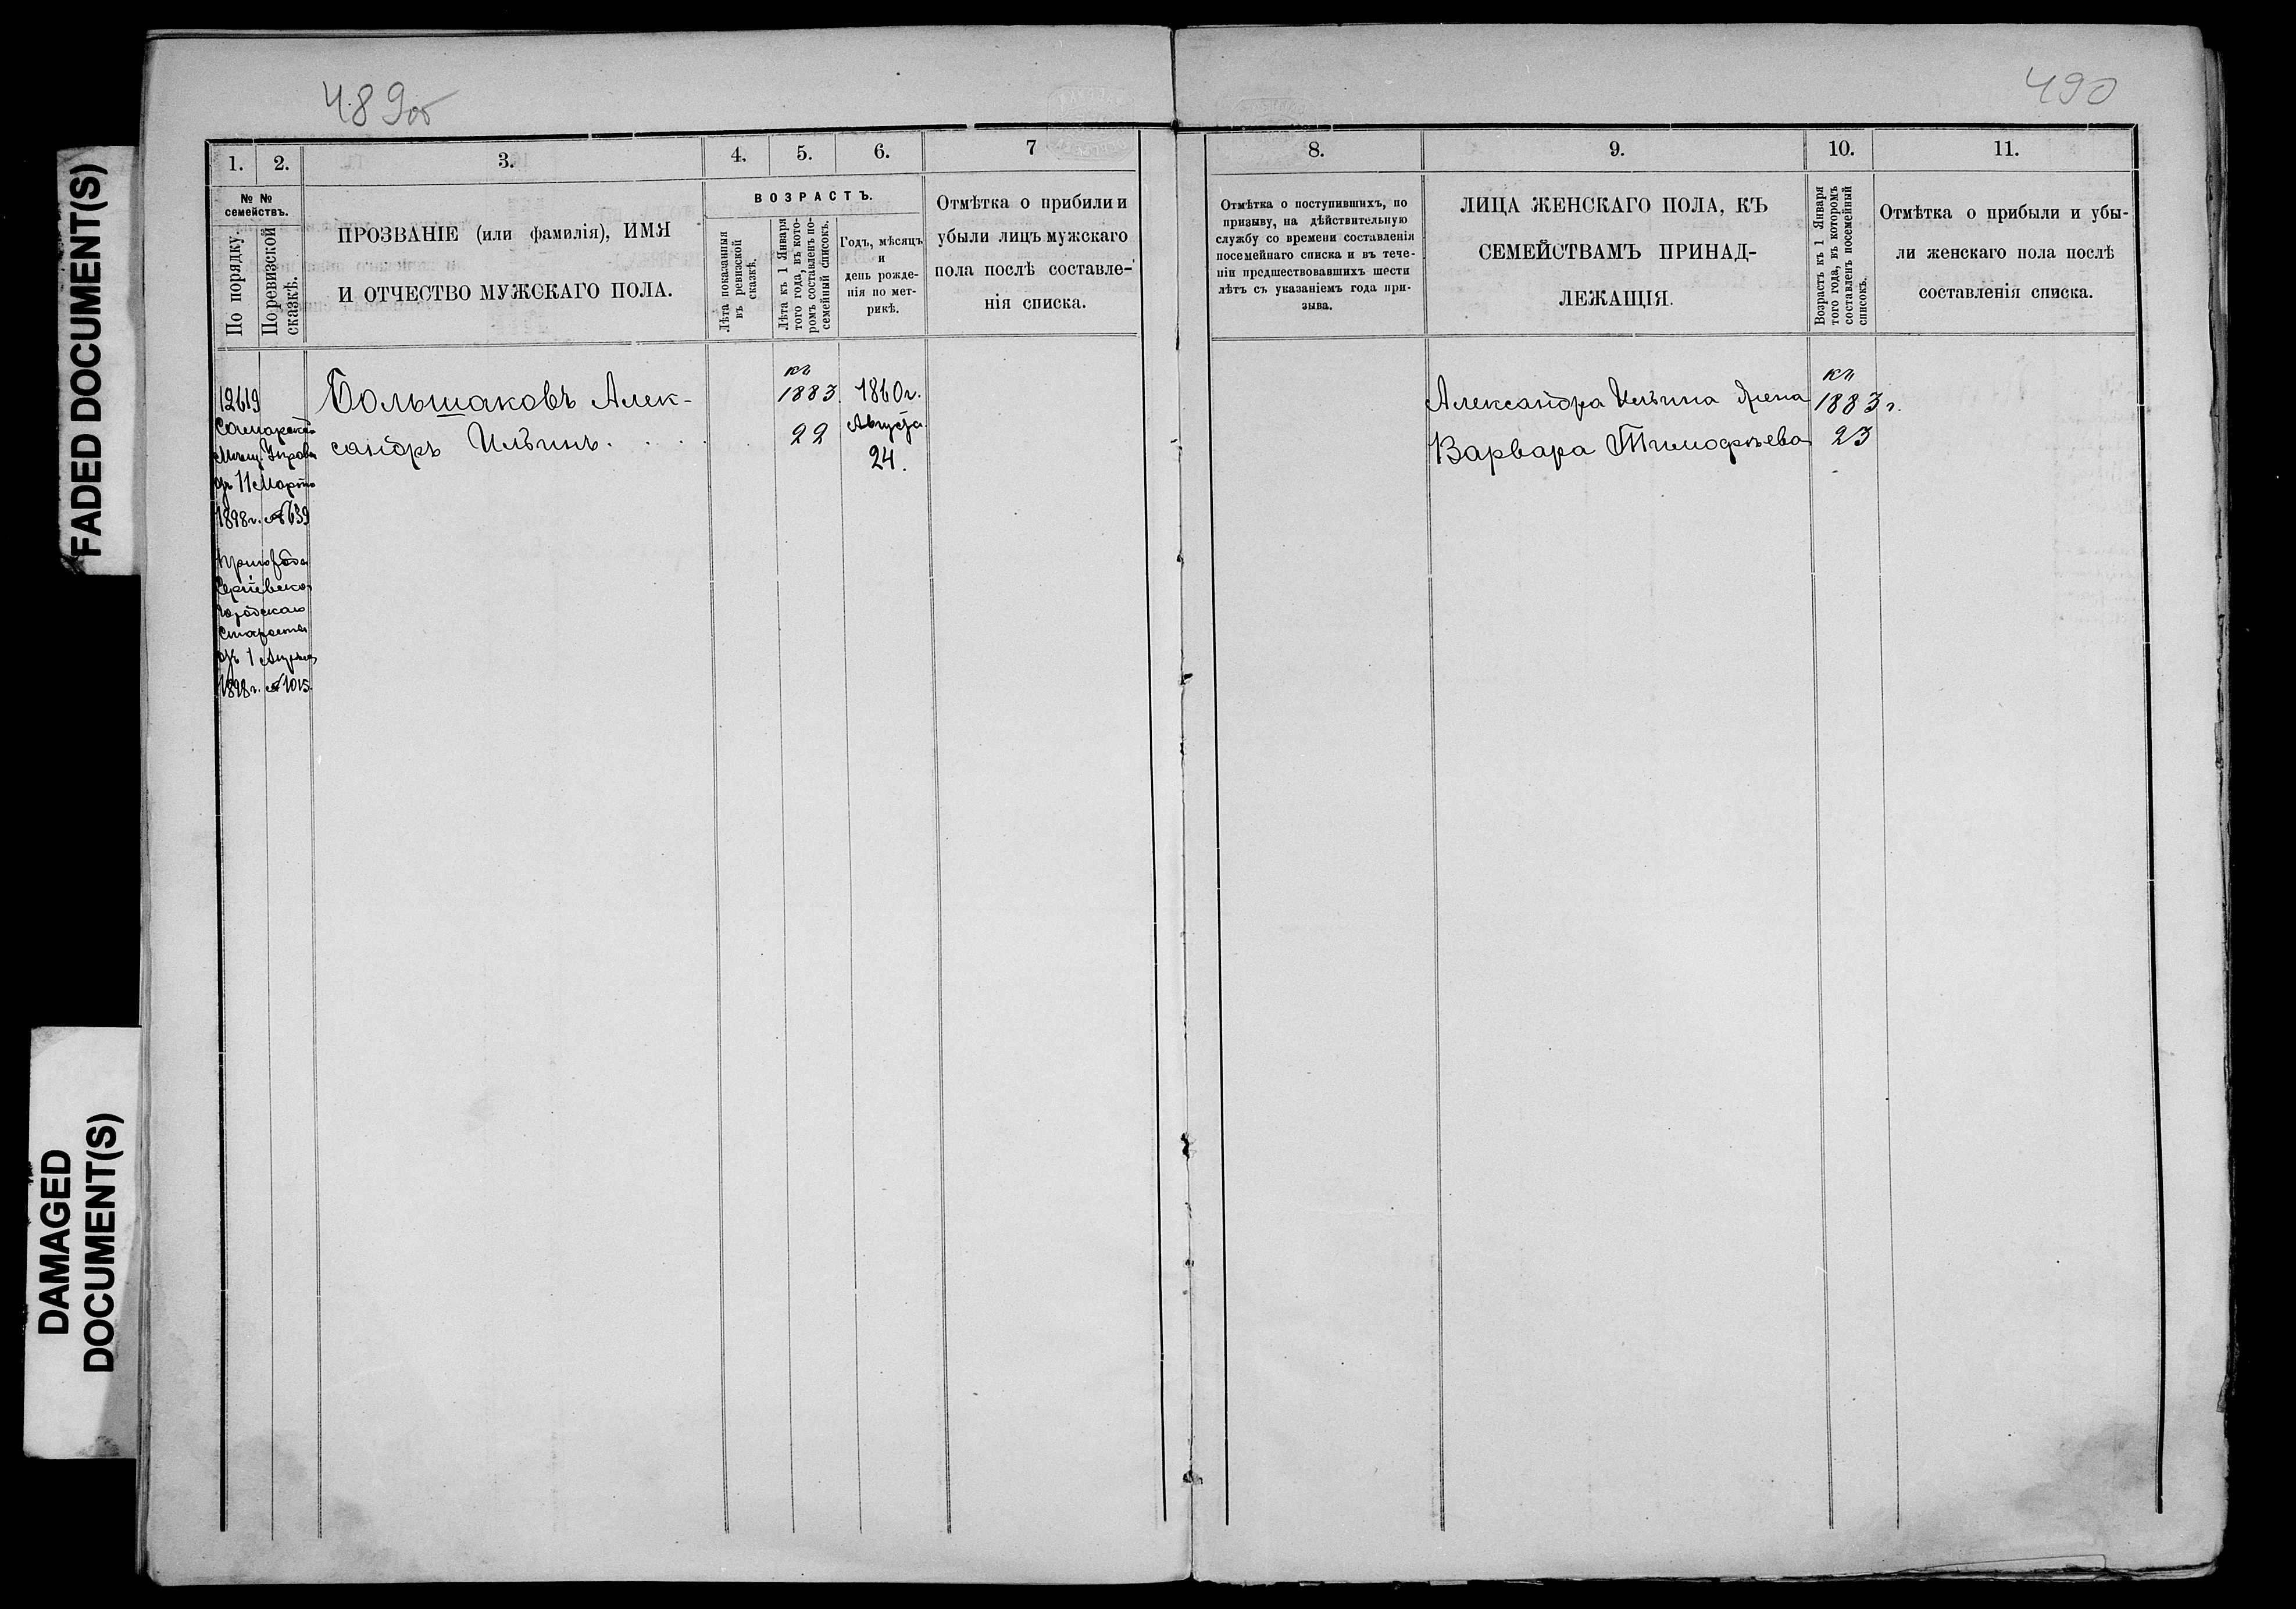 FADED DOCUMENT(S)
DAMAGED
DOCUMENT(S)
489об
1.
2.
3.
4.
5.
6.
7
№ №
семействъ.
По порядку.
По ревизской
сказкѣ.
ПРОЗВАНІЕ (или фамилія), ИМЯ
И ОТЧЕСТВО МУЖСКАГО ПОЛА.
ВОЗРАСТЪ.
Лѣта показанныя
въ ревизской
сказкѣ.
Лѣта къ 1 Января
того года, въ кото-
ромъ составленъ по-
семейный списокъ.
Годъ, мѣсяцъ
и
день рожде-
нія по мет-
рикѣ.
Отмѣтка о прибыли и
убыли лицъ мужскаго
пола послѣ составле-
нія списка.
12619
Самарской
Мѣщ. Управы
отъ 11 Марта
1898 г. № 639
Сергіевскаго
Городскаго
Старосты
отъ 1 Апрѣля
1898 г. № 1015.
Большаковъ Алек-
сандръ Ильинъ.
къ
1883.
22
1860 г.
Августа
24.
490
8.
9.
10.
11.
Отмѣтка о поступившихъ, по
призыву, на дѣйствительную
службу со времени составленія
посемейнаго списка и въ тече-
ніи предшествовавшихъ шести
лѣтъ съ указаніемъ года при-
зыва.
ЛИЦА ЖЕНСКАГО ПОЛА, КЪ
СЕМЕЙСТВАМЪ ПРИНАД-
ЛЕЖАЩІЯ.
Возрастъ къ 1 Января
того года, въ которомъ
составленъ посемейный
списокъ.
Отмѣтка о прибыли и убы-
ли женскаго пола послѣ
составленія списка.
Александра Ильина жена
Варвара Тимофѣева
къ
1883 г.
23